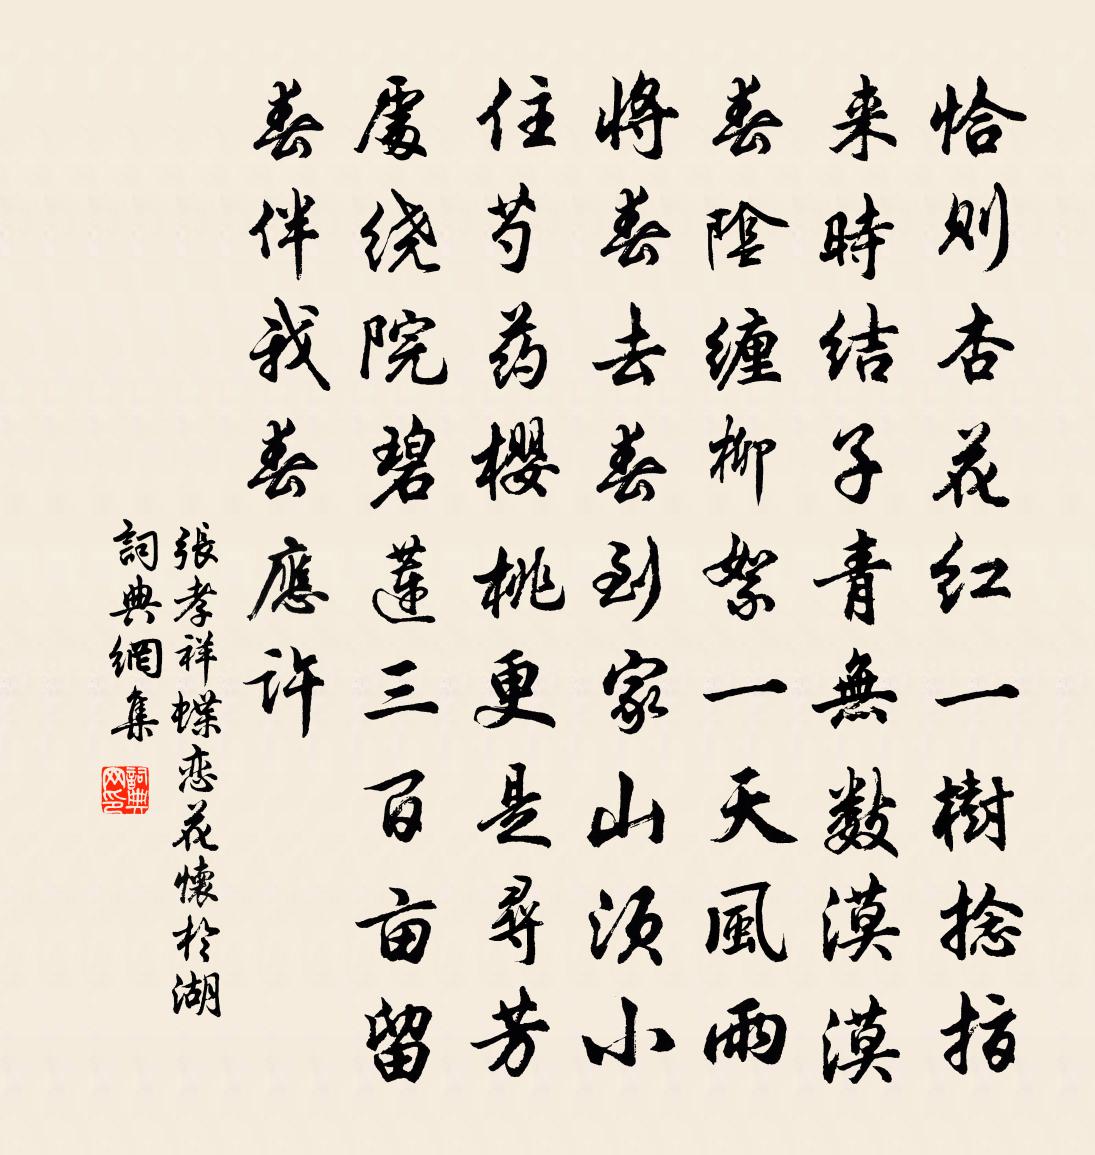 恰则杏花红一樹捻指
来時结子青無數漠漠
春陰缠柳絮一天風雨
將春去春到家山须小
住芍药櫻桃更是尋芳
處绕院碧蓮三百亩留
春伴我春應许
張孝祥蝶恋花懷於湖
詞典網集
詞典网印